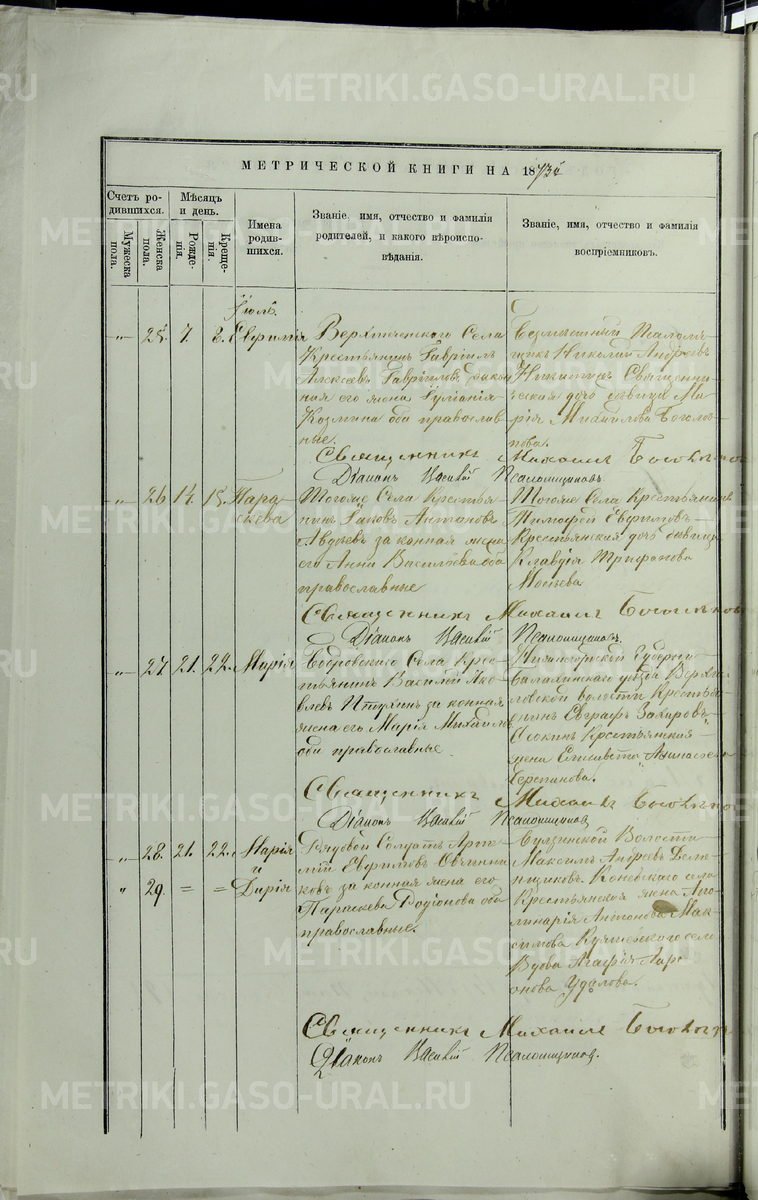 METRIKI.GASO-URAL.RU
МЕТРИЧЕСКОЙ КНИГИ НА 1873й
Счетъ ро-
дившихся.
Мужеска
пола.
Женска
пола.
Мѣсяцъ
и день.
Рожде-
нія.
Креще-
нія.
Имена
родив-
шихся.
Званіе, имя, отчество и фамилія
родителей, и какого вѣроиспо-
вѣданія.
Званіе, имя, отчество и фамилія
воспріемниковъ.
Іюль.
25. 7. 8. Евфимія
Верхтеченскаго Села
Крестьянинъ Гавріилъ
Алексеевъ Гавриловъ закон
ная его жена Іуліанія
Козмина оба православ
ные.
Безмѣстный Псаломщ
щикъ Николай Андреевъ
Никитинъ Священни
ческая дочь девица Ма
рія Михайлова Боголѣ
пова.
Священникъ Михаилъ
Діаконъ Василій Псаломщиковъ
26 14. 15. Пара
скева
Тогоже Села Крестья
нинъ Іаковъ Антоновъ
Авдѣевъ законная жена
его Анна Васильева оба
православные
Тогоже Села Крестьянинъ
Тимофей Евфимовъ
Крестьянская дочь девица
Клавдія Трифонова
Священникъ Михаилъ
Діаконъ Василій Псаломщиковъ.
27. 21. 22. Марія
Бобровскаго Села Крес
тьянинъ Василій Яко
влевъ Птухинъ законная
жена его Марія Михайлов
оба православные.
Нижегородской Губерніи
Балахнинскаго уѣзда
волости Крестья
нинъ Евграфъ Захаровъ
Осокинъ Крестьянская
жена Елисавета Афанасьева
Черепанова.
Священникъ Михаилъ
Діаконъ Василій Псаломщиковъ
28. 21. 22. Марія
и
29. = = Дарія
Рядовой Солдатъ Арте
мій Евфимовъ Овчинни
ковъ законная жена его
Параскева Родіонова оба
православные.
Булзинской Волости
Максимъ Андреевъ
Коневскаго села
Крестьянская жена Апо
линарія Антонова Мак
симова села
Вдова Агафія Аар
онова Удалова.
Священникъ Михаилъ
Діаконъ Василій Псаломщиковъ.